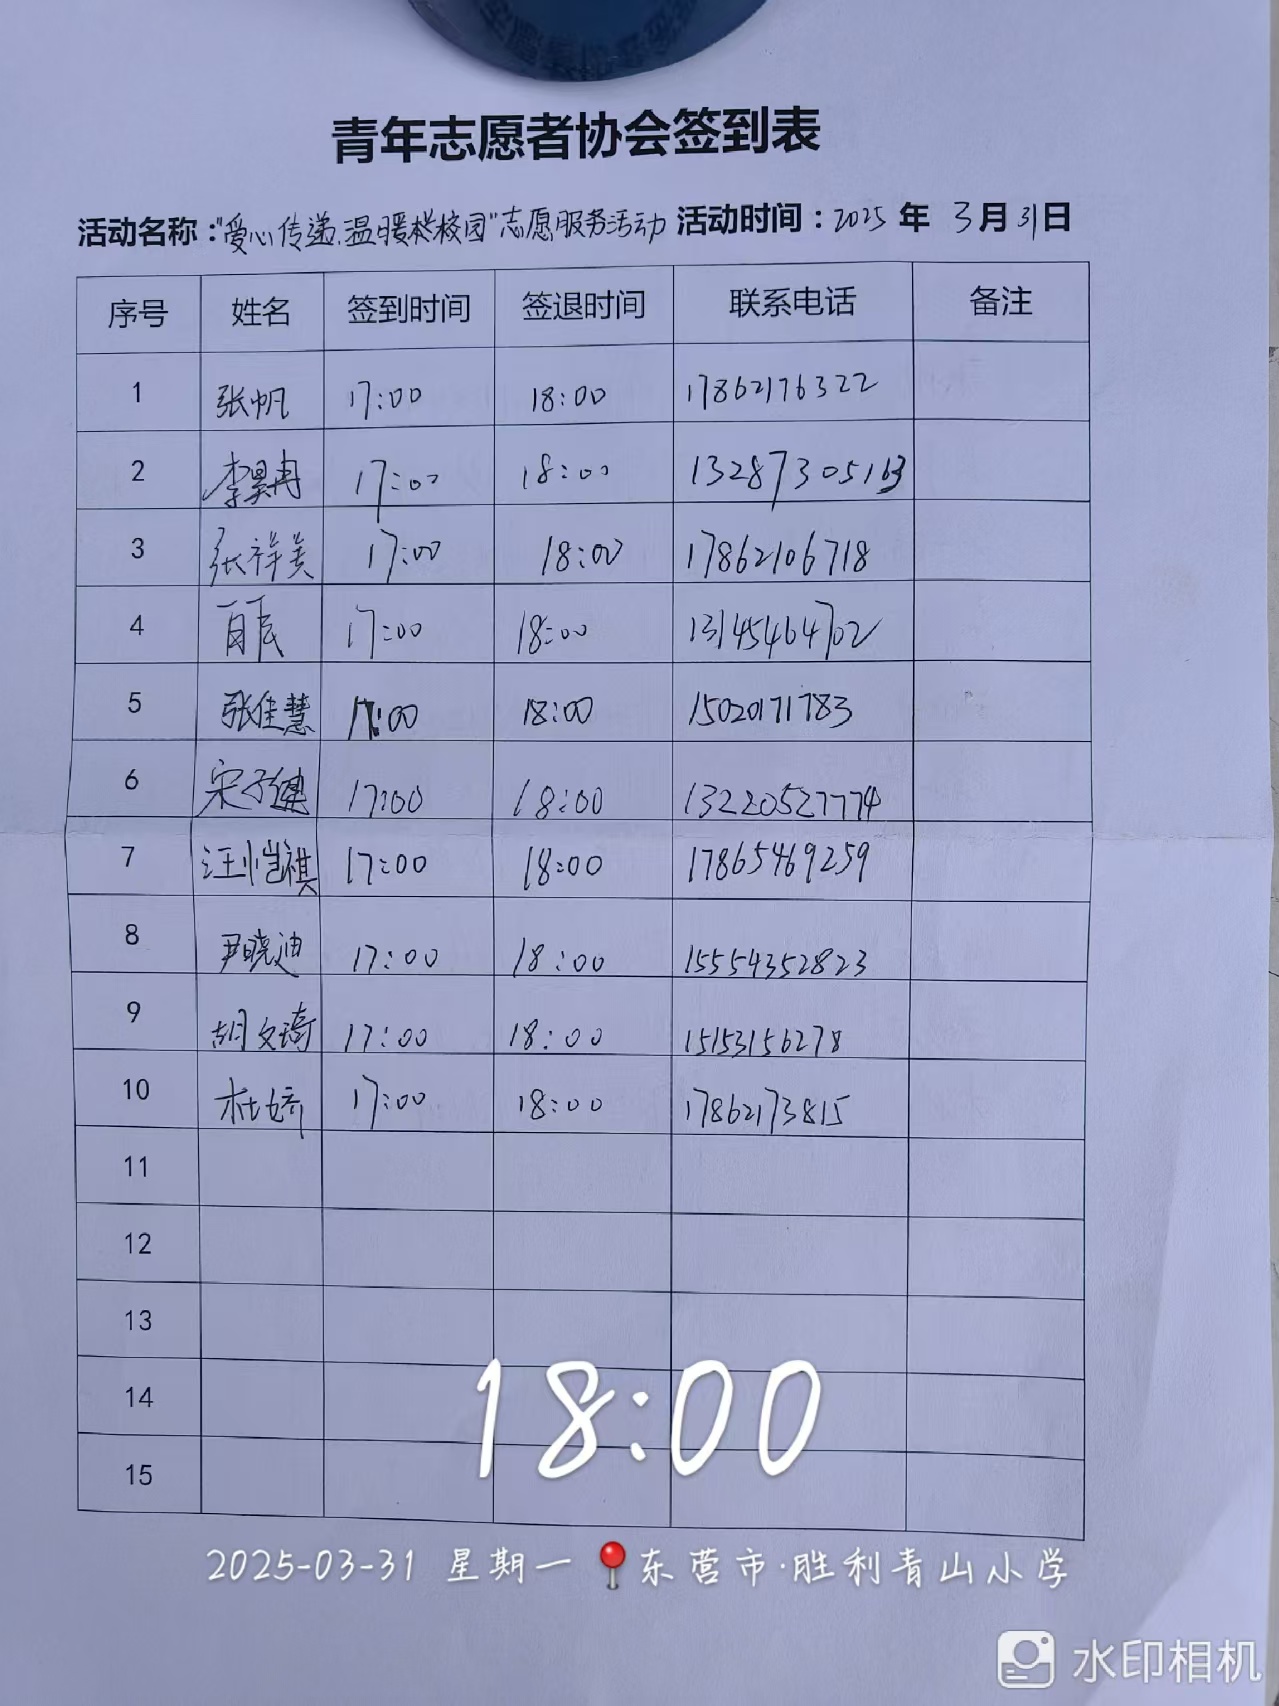 青年志愿者协会签到表
活动名称："爱心传递,温暖校园"志愿服务活动 活动时间：2025 年 3月31日
序号 姓名 签到时间 签退时间 联系电话 备注
1 张帆 17:00 18:00 17862176322
2 李昊冉 17:00 18:00 13287305163
3 张祥美 17:00 18:00 17862106718
4 17:00 18:00 13145464702
5 张佳慧 17:00 18:00 15020171783
6 宋子健 17:00 18:00 13220527774
7 汪恺祺 17:00 18:00 17865469259
8 尹晓迪 17:00 18:00 15554352823
9 胡文琦 17:00 18:00 15153156278
10 杜娇 17:00 18:00 17862173815
11
12
13
14
15
18:00
2025-03-31 星期一 东营市·胜利青山小学
水印相机